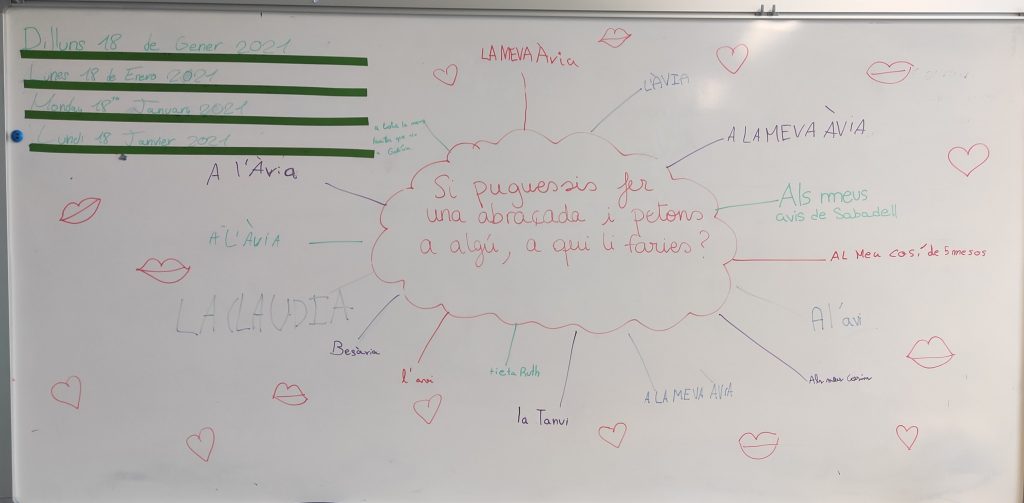 Dilluns 18 de Gener 2021
Lunes 18 de Enero 2021
Monday 18th January 2021
Lundi 18 Janvier 2021
LA MEVA Àvia
L'ÀVIA
A LA MEVA ÀVIA
Als meus
avis de Sabadell
AL MEU COSÍ de 5 mesos
A l'avi
Als meus Cosins
A LA MEVA ÀVIA
la Tanvi
tieta Ruth
l'avi
Besàvia
LA CLAUDIA
A L'ÀVIA
A l'Àvia
a tota la meva
Si puguessis fer
una abraçada i petons
a algú, a qui li faries?